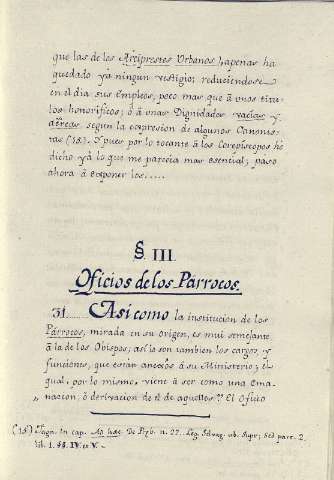 que las de los Arciprestes Urbanos, apenas ha
quedado yà ningun vestigio; reduciendose
en el dia sus Empleos, poco mas que à unos titu-
los honorificos; ò à unas Dignidades vacias y
aëreas, segun la expresion de algunos Canonis-
tas (15). Y pues por lo tocante à los Corepiscopos he
dicho yà lo que me parecia mas esencial; paso
ahora à exponer los.....
§. III.
Oficios de los Párrocos.
31. Asi como la institucion de los
Párrocos, mirada en su origen, es mui semejante
à la de los Obispos; asi lo son tambien los cargos, y
funciones, que estàn anexos à su Ministerio; el
qual, por lo mismo, viene à ser como una Ema-
nacion, ò derivacion de el de aquellos. El Oficio
(15) Fagn. in cap. Ad haec. De n. 22. Sup; Sed part. 2.
tit. 1. §§. IV. et V.